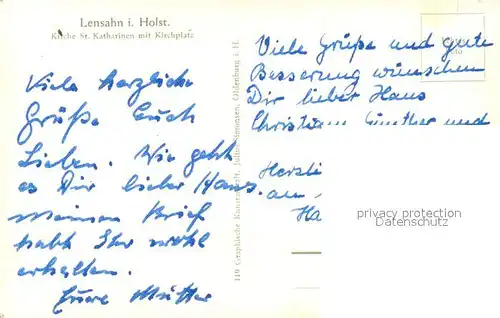 Lensahn i. Holst.
Kirche St. Katharinen mit Kirchplatz
Viele herzliche
Grüße Euch
Lieben. Wie geht
es Dir lieber Hans.
Meinen Brief
habt Ihr wohl
erhalten.
Eure Mutter
119 Graphische Kunstanstalt, Julius Simonsen, Oldenburg i. H.
Viele Grüße und gute
Besserung wünschen
Dir lieber Hans
Christian Günther und
Herzli
an
Ha
privacy protection
Datenschutz